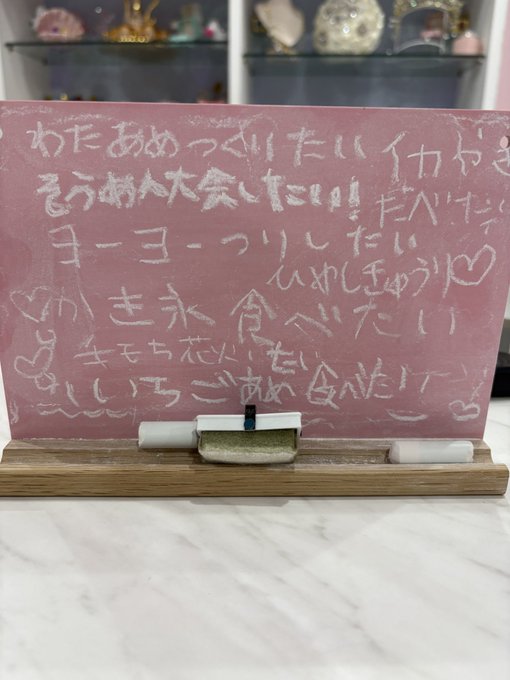 わたあめつくりたい
イカやき
たべたい
そうめん大会したい!
ヨーヨーつりしたい
ひやしきゅうり♡
かき氷食べたい
手もち花火したい
いちごあめ食べたい